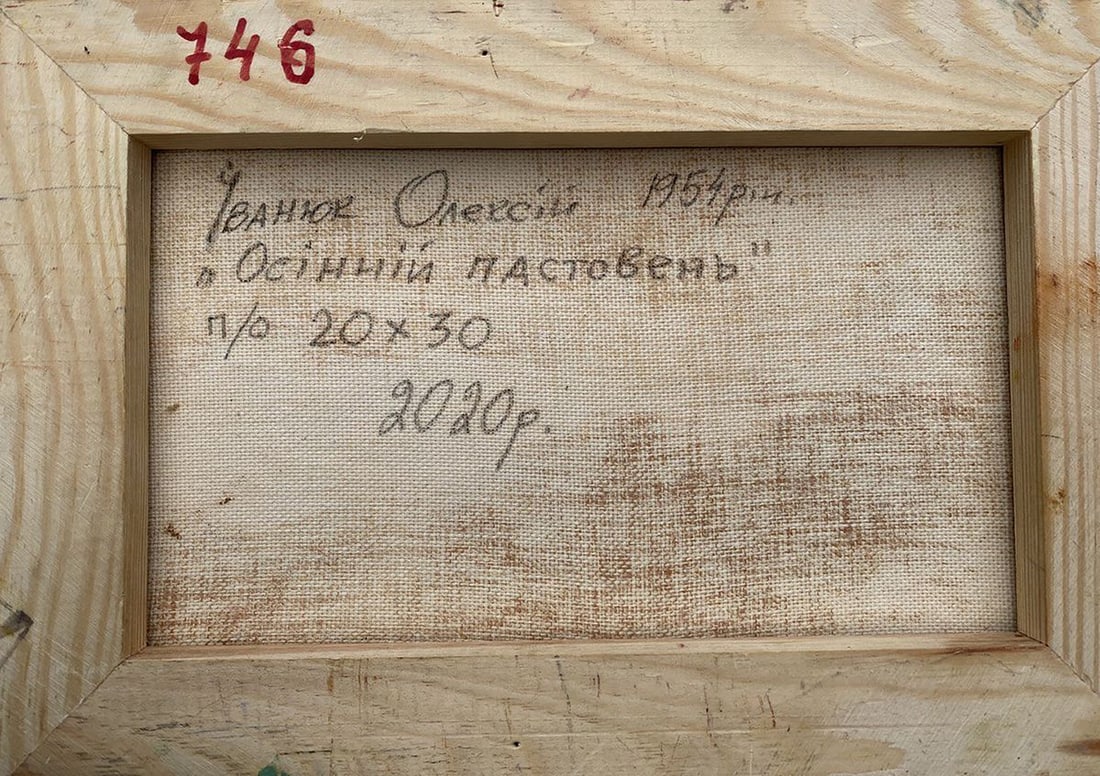 746
Іванюк Олексій 1954р.н.
„Осінній пастовень"
п/о 20х30
2020р.